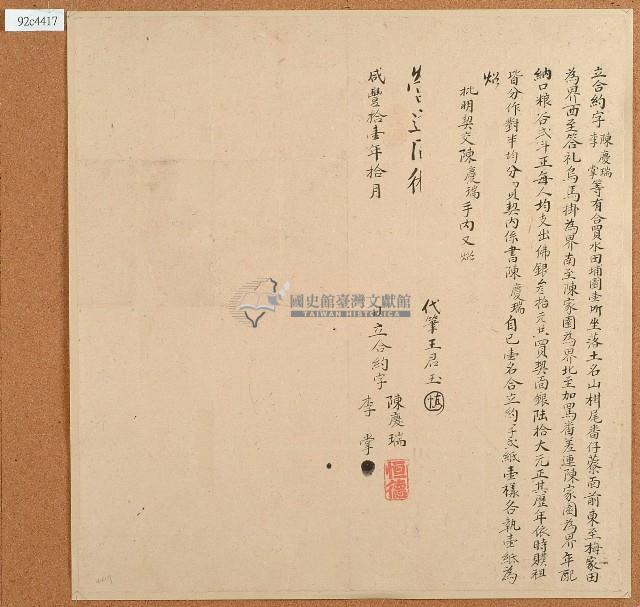 92c4417
立合約字陳慶瑞李掌等有合買水田埔園壹所坐落土名山柑尾番仔蔡面前東至梅家田
為界西至答礼烏馬掛為界南至陳家園為界北至加罵番差連陳家園為界年配
納口粮谷弍斗正每人均支出佛銀叁拾元共買契面銀陸拾大元正其歷年依時贌租
皆分作對半均分口其契內係書陳慶瑞自己壹名合立約字弍紙壹樣各執壹紙為
炤
批明契交陳慶瑞手內又炤
代筆王君玉
慎
咸豐拾壹年拾月
立合約字
陳慶瑞
李掌
恒德
國史館臺灣文獻館
TAIWAN HISTORICA